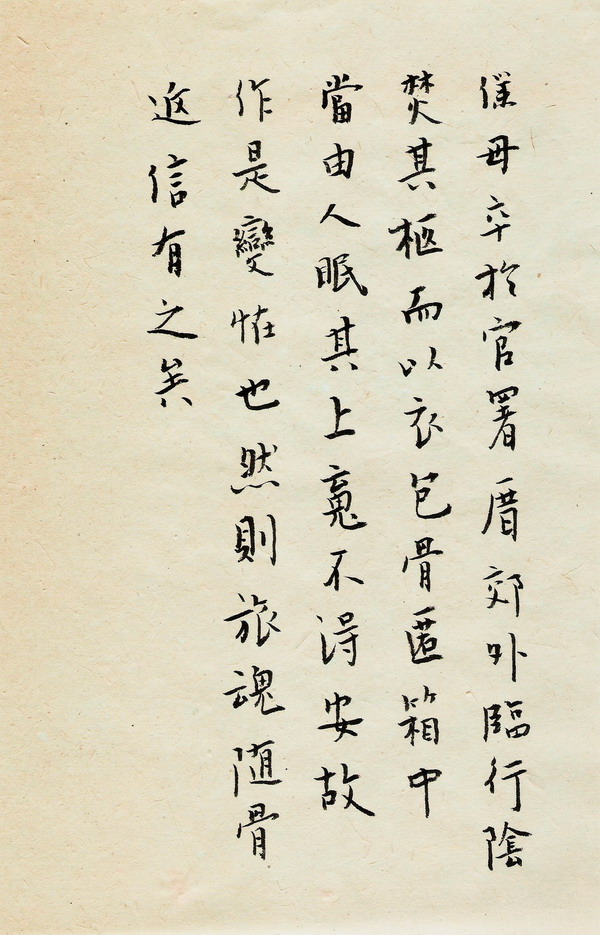 僕母卒於官署厝郊外臨行陰
焚其柩而以衣包骨匿箱中
當由人眠其上䰟不得安故
作是變怪也然則旅魂随骨
返信有之矣